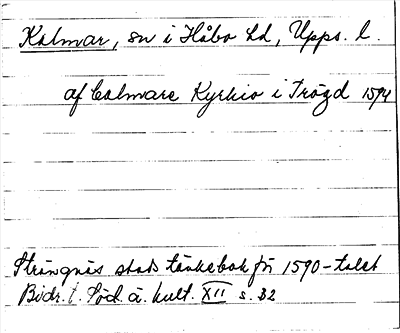 Kalmar, sn i Håbo hd, Upps. l.
af Calmare Kyrkio i Trögd 1594
Strängnäs stads tänkebok för 1590-talet
Bidr. t. Söd. ä. kult. XII s. 32